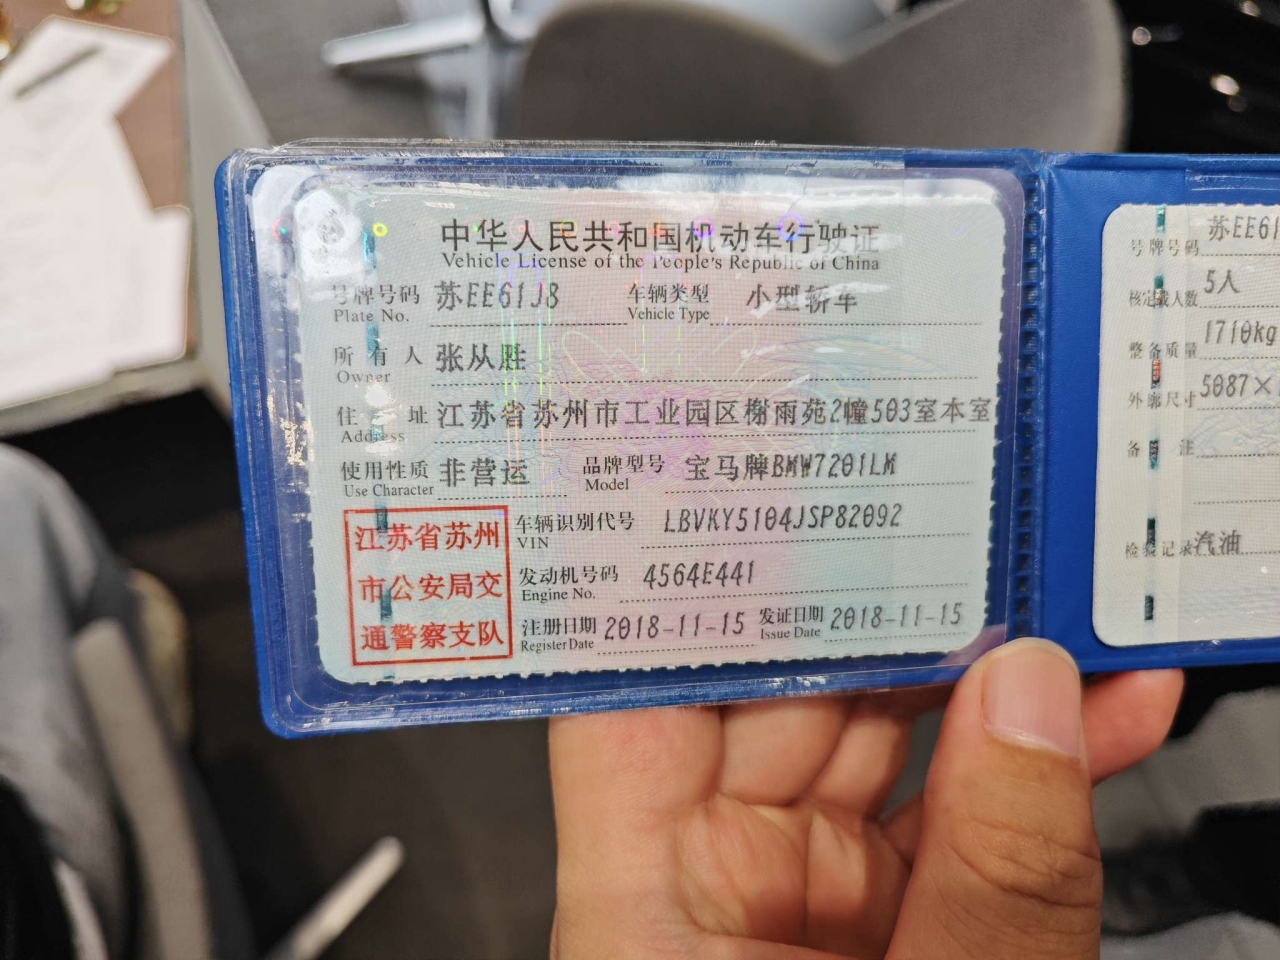 中华人民共和国机动车行驶证
Vehicle License of the People's Republic of China
号牌号码 苏EE61J8 车辆类型 小型轿车
Plate No. Vehicle Type
所有人 张从胜
Owner
住址 江苏省苏州市工业园区榭雨苑2幢503室本室
Address
使用性质 非营运 品牌型号 宝马牌BMW7201LM
Use Character Model
江苏省苏州
市公安局交
通警察支队
车辆识别代号 LBVKY5104JSP82092
VIN
发动机号码 4564E441
Engine No.
注册日期 2018-11-15 发证日期 2018-11-15
Register Date Issue Date
号牌号码 苏EE61
核定载人数 5人
整备质量 1710kg
外廓尺寸 5087×
备注
检验记录 汽油